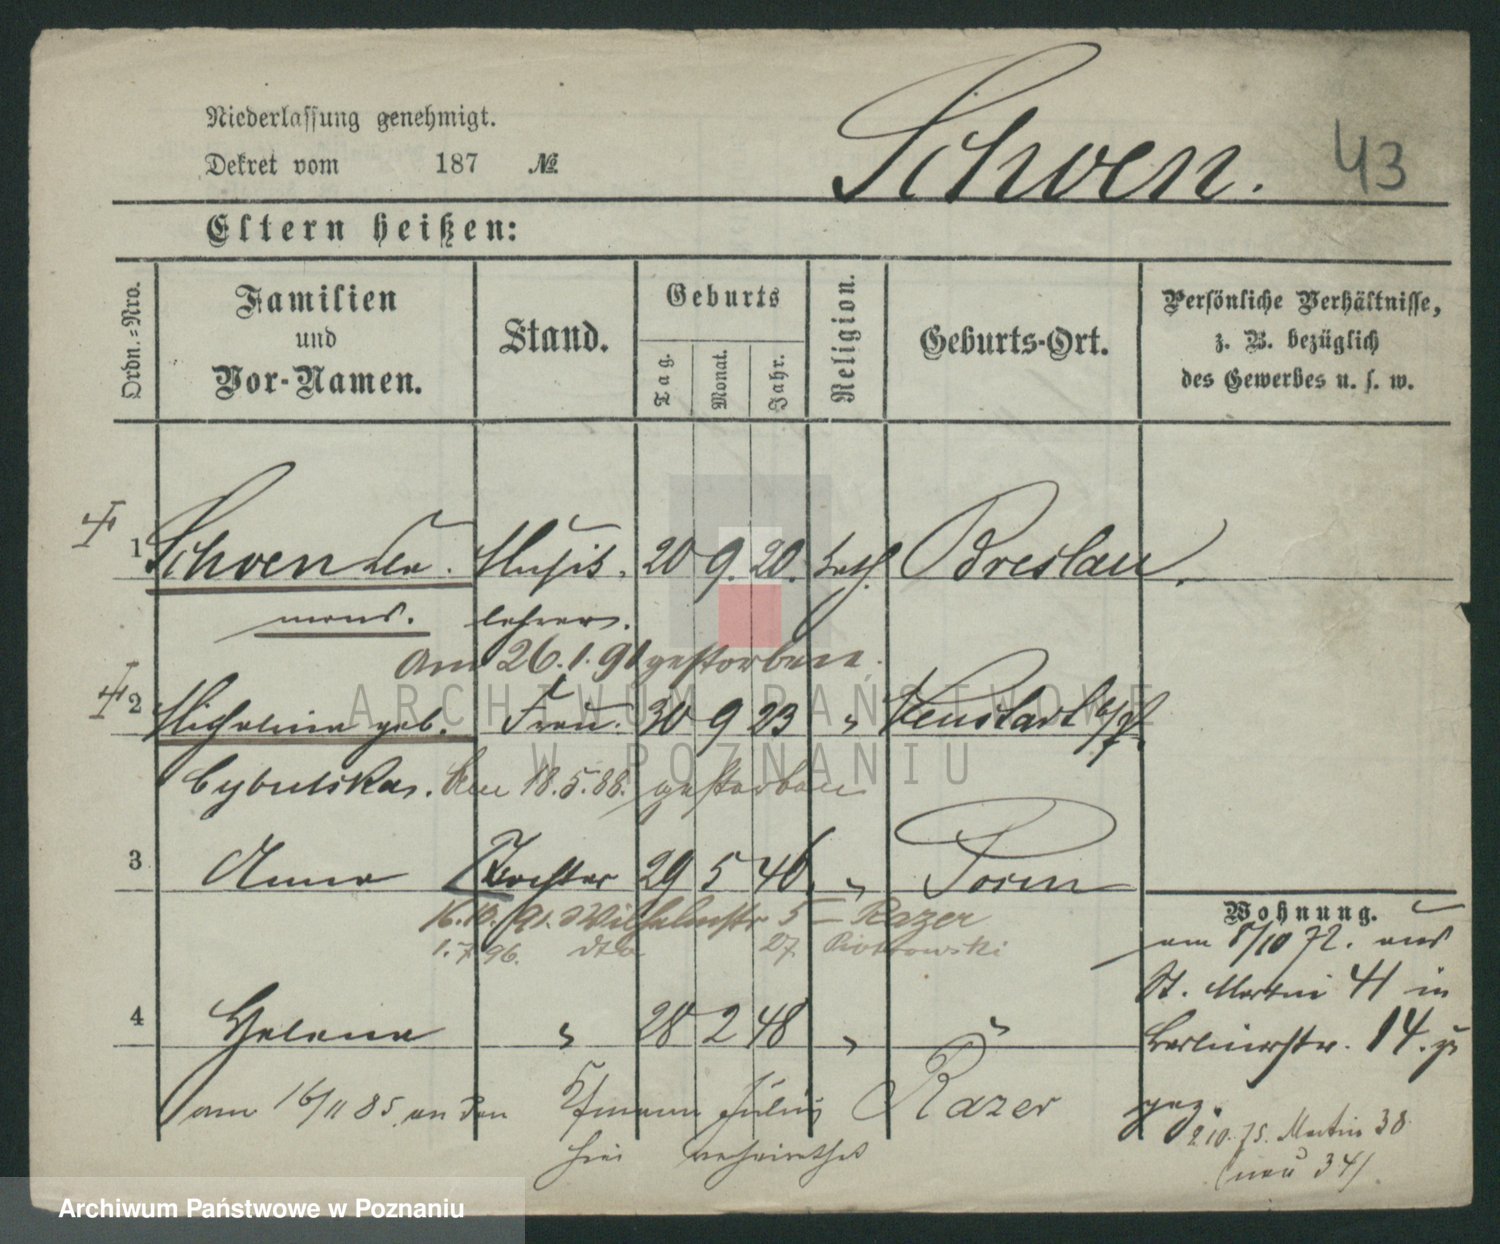 Niederlassung genehmigt.
Dekret vom 187 №
Schoen. 43
Eltern heißen:
Ordn.-Nro.
Familien
und
Vor-Namen.
Stand.
Geburts
Tag.
Monat.
Jahr.
Religion.
Geburts-Ort.
Persönliche Verhältnisse,
z. B. bezüglich
des Gewerbes u. s. w.
1 Schoen Cle. Musik. 20 9. 20. kath. Breslau.
mens. lehrer.
am 26.1.91 gestorben.
2 Michalina geb. Frau. 30 9 23 " Neustadt b/P.
Cybulska. Am 18.5.88. gestorben
3 Anna Tochter 29 5 46. " Posen
16.10.91. Wilhelmstr 5 = Razer
1.7.96. dto 27 Piotrowski
4 Helena " 28 2 48 " "
am 16/11 85 an den Kfmann Julius Razer
hier verheirathet
Wohnung.
am 5/10 72. aus
St. Martin 41 in
Berlinerstr. 14. zu
gez.
2.10.75. Martin 38
(neu 34)
ARCHIWUM PAŃSTWOWE
W POZNANIU
Archiwum Państwowe w Poznaniu